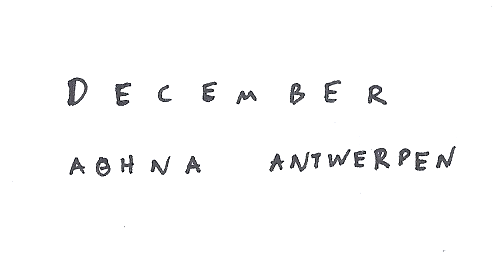 DECEMBER
ΑΘΗΝΑ ANTWERPEN